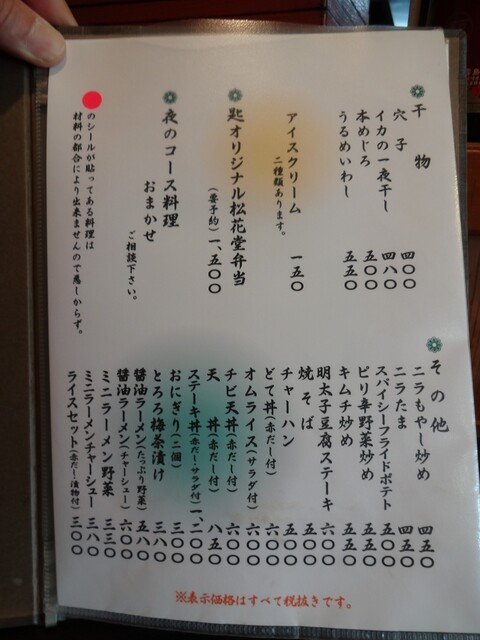 干物
穴子 四〇〇
イカの一夜干し 四八〇
本めじろ 五〇〇
うるめいわし 五五〇
アイスクリーム 一五〇
二種類あります。
匙オリジナル松花堂弁当
(要予約) 一、五〇〇
夜のコース料理
おまかせ
ご相談下さい。
のシールが貼ってある料理は
材料の都合により出来ませんので悪しからず。
その他
ニラもやし炒め 四五〇
ニラたま 四五〇
スパイシーフライドポテト 五〇〇
ピリ辛野菜炒め 五五〇
キムチ炒め 五五〇
明太子豆腐ステーキ 六〇〇
焼そば 五〇〇
チャーハン 五〇〇
どて丼(赤だし付) 六〇〇
オムライス(サラダ付) 六〇〇
チビ天丼(赤だし付) 六〇〇
天丼(赤だし付) 八五〇
ステーキ丼(赤だし・サラダ付) 一、二〇〇
おにぎり(二個) 三〇〇
とろろ梅茶漬け 三八〇
醤油ラーメン(たっぷり野菜) 五八〇
醤油ラーメン(チャーシュー) 六〇〇
ミニラーメン野菜 三三〇
ミニラーメンチャーシュー 三八〇
ライスセット(赤だし・漬物付) 三〇〇
※表示価格はすべて税抜きです。